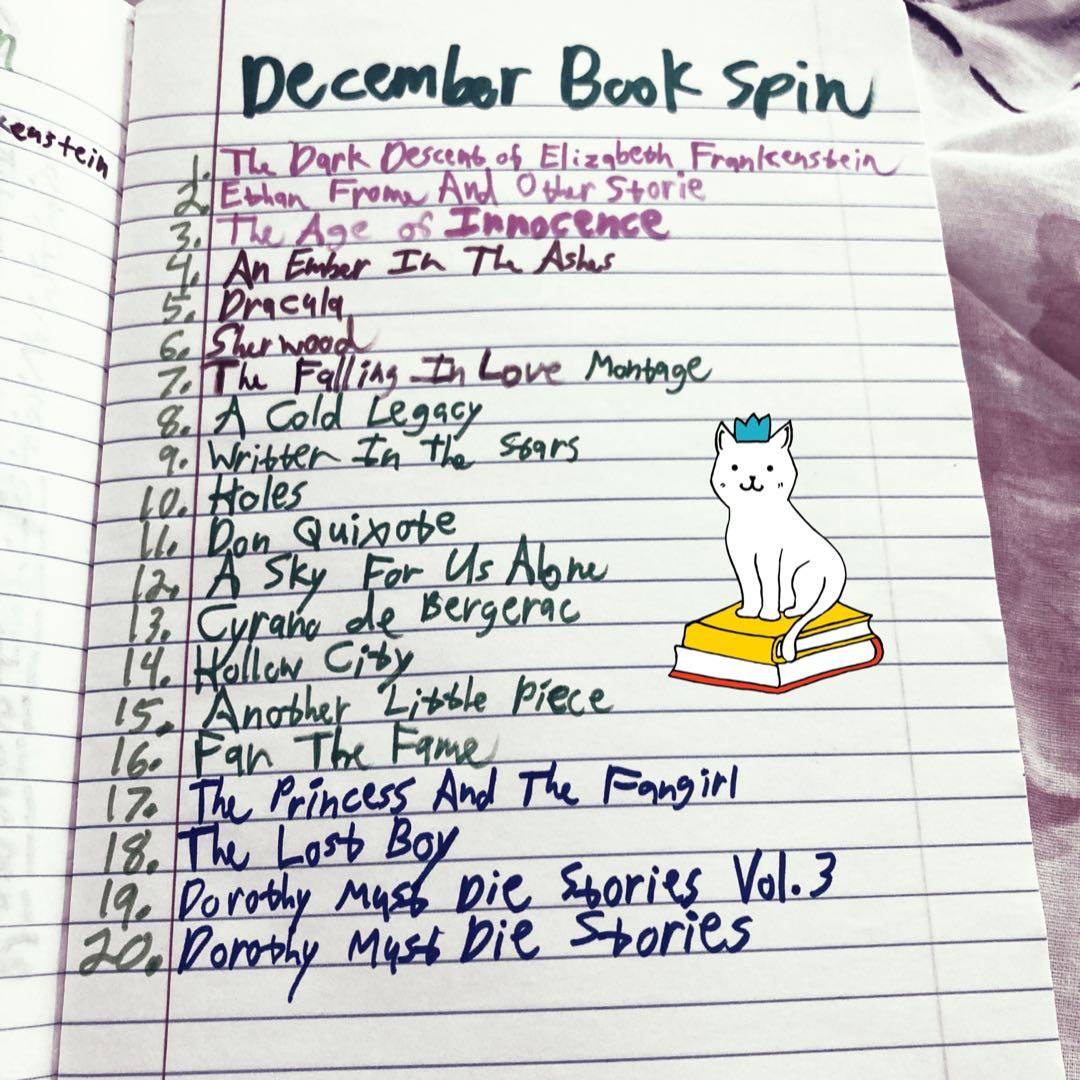 kenstein
December Book Spin
1. The Dark Descent of Elizabeth Frankenstein
2. Ethan Frome And Other Storie
3. The Age of Innocence
4. An Ember In The Ashes
5. Dracula
6. Sherwood
7. The Falling In Love Montage
8. A Cold Legacy
9. Written In The Stars
10. Holes
11. Don Quixote
12. A Sky For Us Alone
13. Cyrano de Bergerac
14. Hollow City
15. Another Little Piece
16. Fan The Fame
17. The Princess And The Fangirl
18. The Lost Boy
19. Dorothy Must Die Stories Vol.3
20. Dorothy Must Die Stories